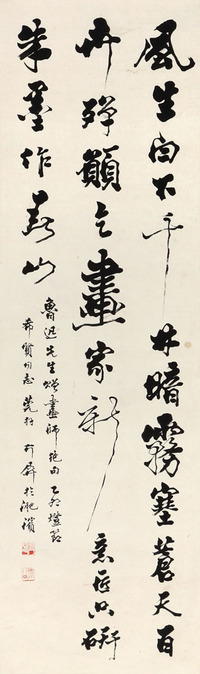 風生白下千林暗霧塞蒼天百
卉殫願乞畫家新意匠只研
朱墨作春山
魯迅先生贈畫師絕句 乙卯燈節
希賢同志莞存 於滬濱